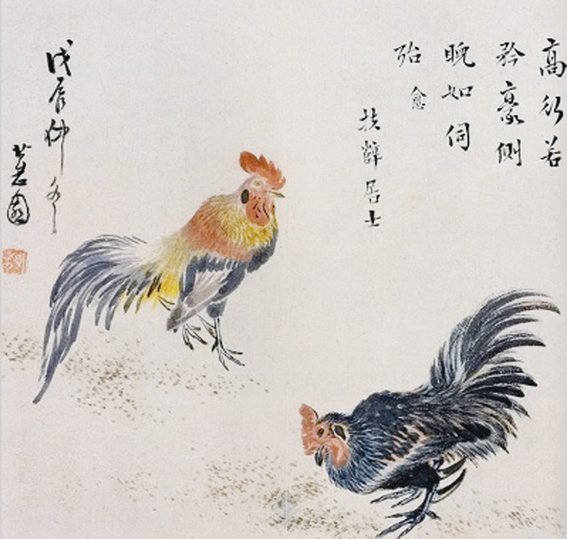 高行若
矜豪側
睨如伺
殆 愈
居士
戊辰仲冬
蕙園